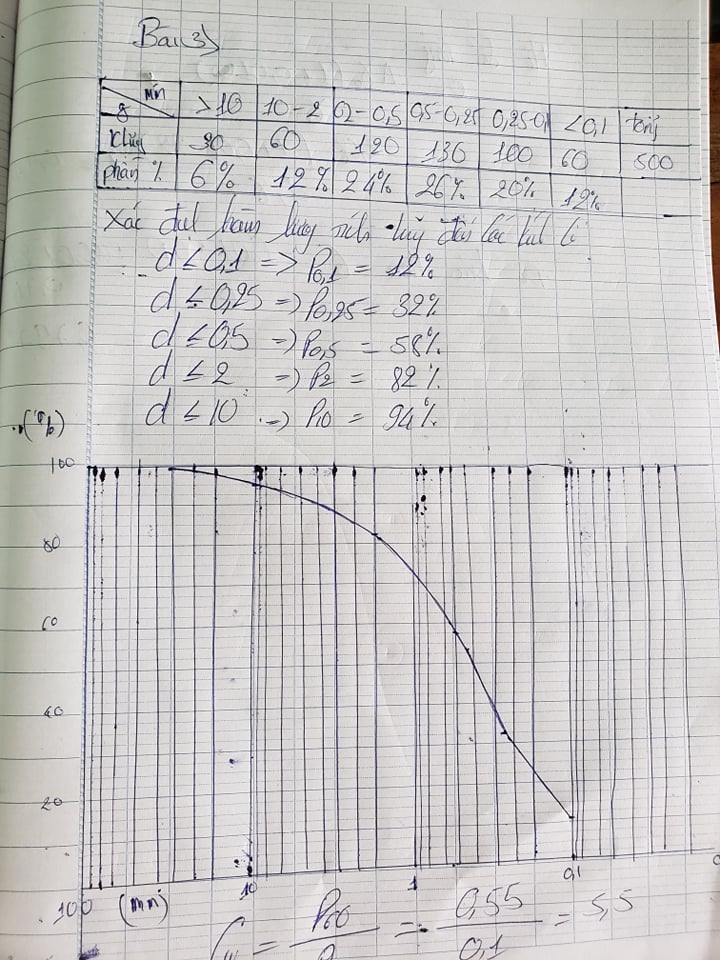 Bài 3)
mm >10 10-2 2-0,5 0,5-0,25 0,25-0,1 <0,1 tổng
g
Klượng 30 60 120 130 100 60 500
phần % 6% 12% 24% 26% 20% 12%
Xác định hàm lượng tích luỹ đến các
d ≤ 0,1 => P0,1 = 12%
d ≤ 0,25 => P0,25 = 32%
d ≤ 0,5 => P0,5 = 58%
d ≤ 2 => P2 = 82%
d ≤ 10 => P10 = 94%
(%)
100
80
60
40
20
10 1 0,1
100 (mm)
= P60 = 0,55 = 5,5
0,1